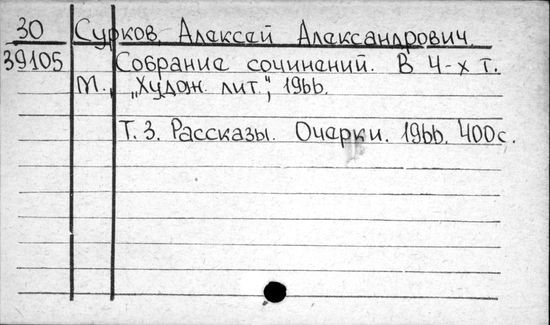 30 Сурков, Алексей Александрович.
39105 Собрание сочинений. В 4-х т.
М., „Худож. лит.", 1966.
Т. 3. Рассказы. Очерки. 1966. 400с.